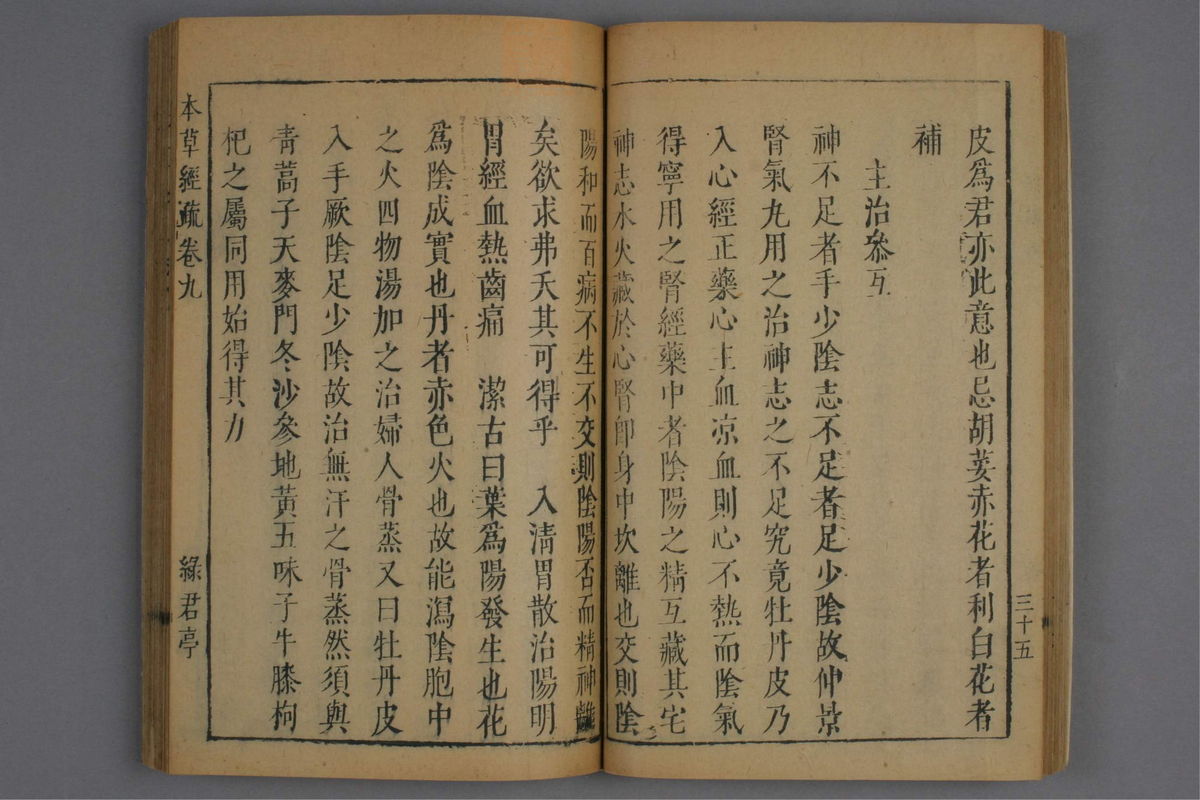 皮爲君亦此意也忌胡荽赤花者利白花者
補
主治叅互
神不足者手少陰志不足者足少陰故仲景
腎氣丸用之治神志之不足究竟牡丹皮乃
入心經正藥心主血凉血則心不熱而陰氣
得寧用之腎經藥中者陰陽之精互藏其宅
神志水火藏於心腎卽身中坎離也交則陰
陽和而百病不生不交則陰陽否而精神離
矣欲求弗夭其可得乎　入淸胃散治陽明
胃經血熱齒痛　潔古曰葉爲陽發生也花
爲陰成實也丹者赤色火也故能瀉陰胞中
之火四物湯加之治婦人骨蒸又曰牡丹皮
入手厥陰足少陰故治無汗之骨蒸然須與
靑蒿子天麥門冬沙參地黃五味子牛膝枸
杞之屬同用始得其力
三十五
本草經疏卷九
綠君亭